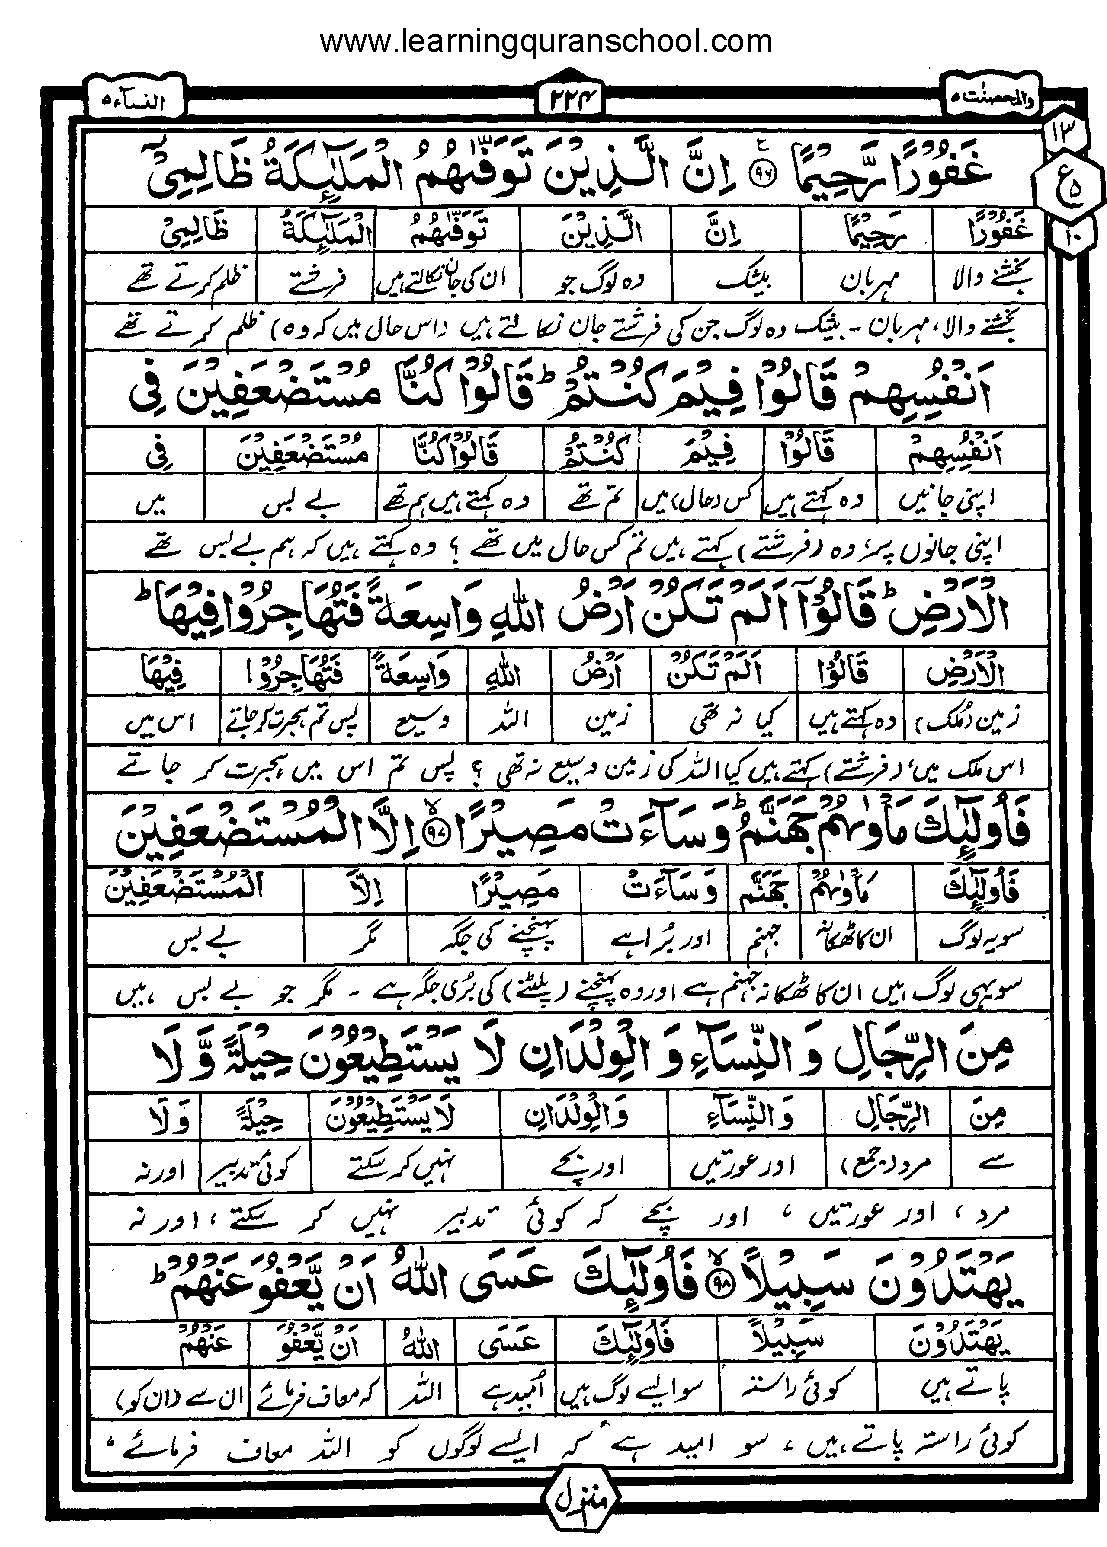 www.learningquranschool.com
والمحصنٰت ۵ ۲۲۴ النسآء ۵
۱۳
ع ۵
۱۰
غَفُوْرًا رَّحِیْمًا ۹۶ اِنَّ الَّذِیْنَ تَوَفّٰىهُمُ الْمَلٰٓئِكَةُ ظَالِمِیْۤ
غَفُوْرًا رَحِیْمًا اِنَّ الَّذِیْنَ تَوَفّٰىهُمُ الْمَلٰٓئِكَةُ ظَالِمِیْۤ
بخشنے والا مہربان بیشک وہ لوگ جو ان کی جان نکالتے ہیں فرشتے ظلم کرتے تھے
بخشنے والا، مہربان - بیشک وہ لوگ جن کی فرشتے جان نکالتے ہیں (اس حال میں کہ وہ) ظلم کرتے تھے
اَنْفُسِهِمْ قَالُوْا فِیْمَ كُنْتُمْ ؕ قَالُوْا كُنَّا مُسْتَضْعَفِیْنَ فِی
اَنْفُسِهِمْ قَالُوْا فِیْمَ كُنْتُمْ قَالُوْا كُنَّا مُسْتَضْعَفِیْنَ فِی
اپنی جانیں وہ کہتے ہیں کس (حال) میں تم تھے وہ کہتے ہیں ہم تھے بے بس میں
اپنی جانوں پر، وہ (فرشتے) کہتے ہیں تم کس حال میں تھے ؟ وہ کہتے ہیں کہ ہم بے بس تھے
الْاَرْضِ ؕ قَالُوْۤا اَلَمْ تَكُنْ اَرْضُ اللّٰهِ وَاسِعَةً فَتُهَاجِرُوْا فِیْهَا ؕ
الْاَرْضِ قَالُوْا اَلَمْ تَكُنْ اَرْضُ اللّٰهِ وَاسِعَةً فَتُهَاجِرُوْا فِیْهَا
زمین (ملک) وہ کہتے ہیں کیا نہ تھی زمین اللہ وسیع پس تم ہجرت کر جاتے اس میں
اس ملک میں، (فرشتے) کہتے ہیں کیا اللہ کی زمین وسیع نہ تھی ؟ پس تم اس میں ہجرت کر جاتے
فَاُولٰٓئِكَ مَاْوٰىهُمْ جَهَنَّمُ ؕ وَسَآءَتْ مَصِیْرًا ۹۷ اِلَّا الْمُسْتَضْعَفِیْنَ
فَاُولٰٓئِكَ مَاْوٰىهُمْ جَهَنَّمُ وَسَآءَتْ مَصِیْرًا اِلَّا الْمُسْتَضْعَفِیْنَ
سو یہ لوگ ان کا ٹھکانہ جہنم اور برا ہے پہنچنے کی جگہ مگر بے بس
سو یہی لوگ ہیں ان کا ٹھکانہ جہنم ہے اور وہ پہنچنے (پلٹنے) کی بُری جگہ ہے - مگر جو بے بس ہیں
مِنَ الرِّجَالِ وَ النِّسَآءِ وَ الْوِلْدَانِ لَا یَسْتَطِیْعُوْنَ حِیْلَةً وَّ لَا
مِنَ الرِّجَالِ وَ النِّسَآءِ وَالْوِلْدَانِ لَا یَسْتَطِیْعُوْنَ حِیْلَةً وَ لَا
سے مرد (جمع) اور عورتیں اور بچے نہیں کر سکتے کوئی تدبیر اور نہ
مرد، اور عورتیں، اور بچے کہ کوئی تدبیر نہیں کر سکتے، اور نہ
یَهْتَدُوْنَ سَبِیْلًا ۹۸ فَاُولٰٓئِكَ عَسَى اللّٰهُ اَنْ یَّعْفُوَ عَنْهُمْ ؕ
یَهْتَدُوْنَ سَبِیْلًا فَاُولٰٓئِكَ عَسَى اللّٰهُ اَنْ یَّعْفُوَ عَنْهُمْ
پاتے ہیں کوئی راستہ سو ایسے لوگ ہیں امید ہے اللہ کہ معاف فرمائے ان سے (ان کو)
کوئی راستہ پاتے ہیں، سو امید ہے کہ ایسے لوگوں کو اللہ معاف فرمائے،
منزل ۱